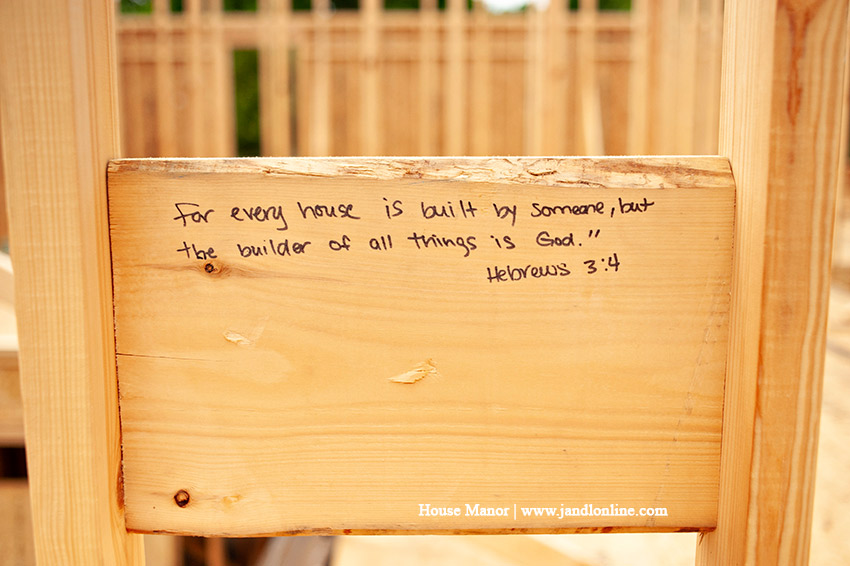 For every house is built by someone, but
the builder of all things is God."
Hebrews 3:4
House Manor | www.jandlonline.com